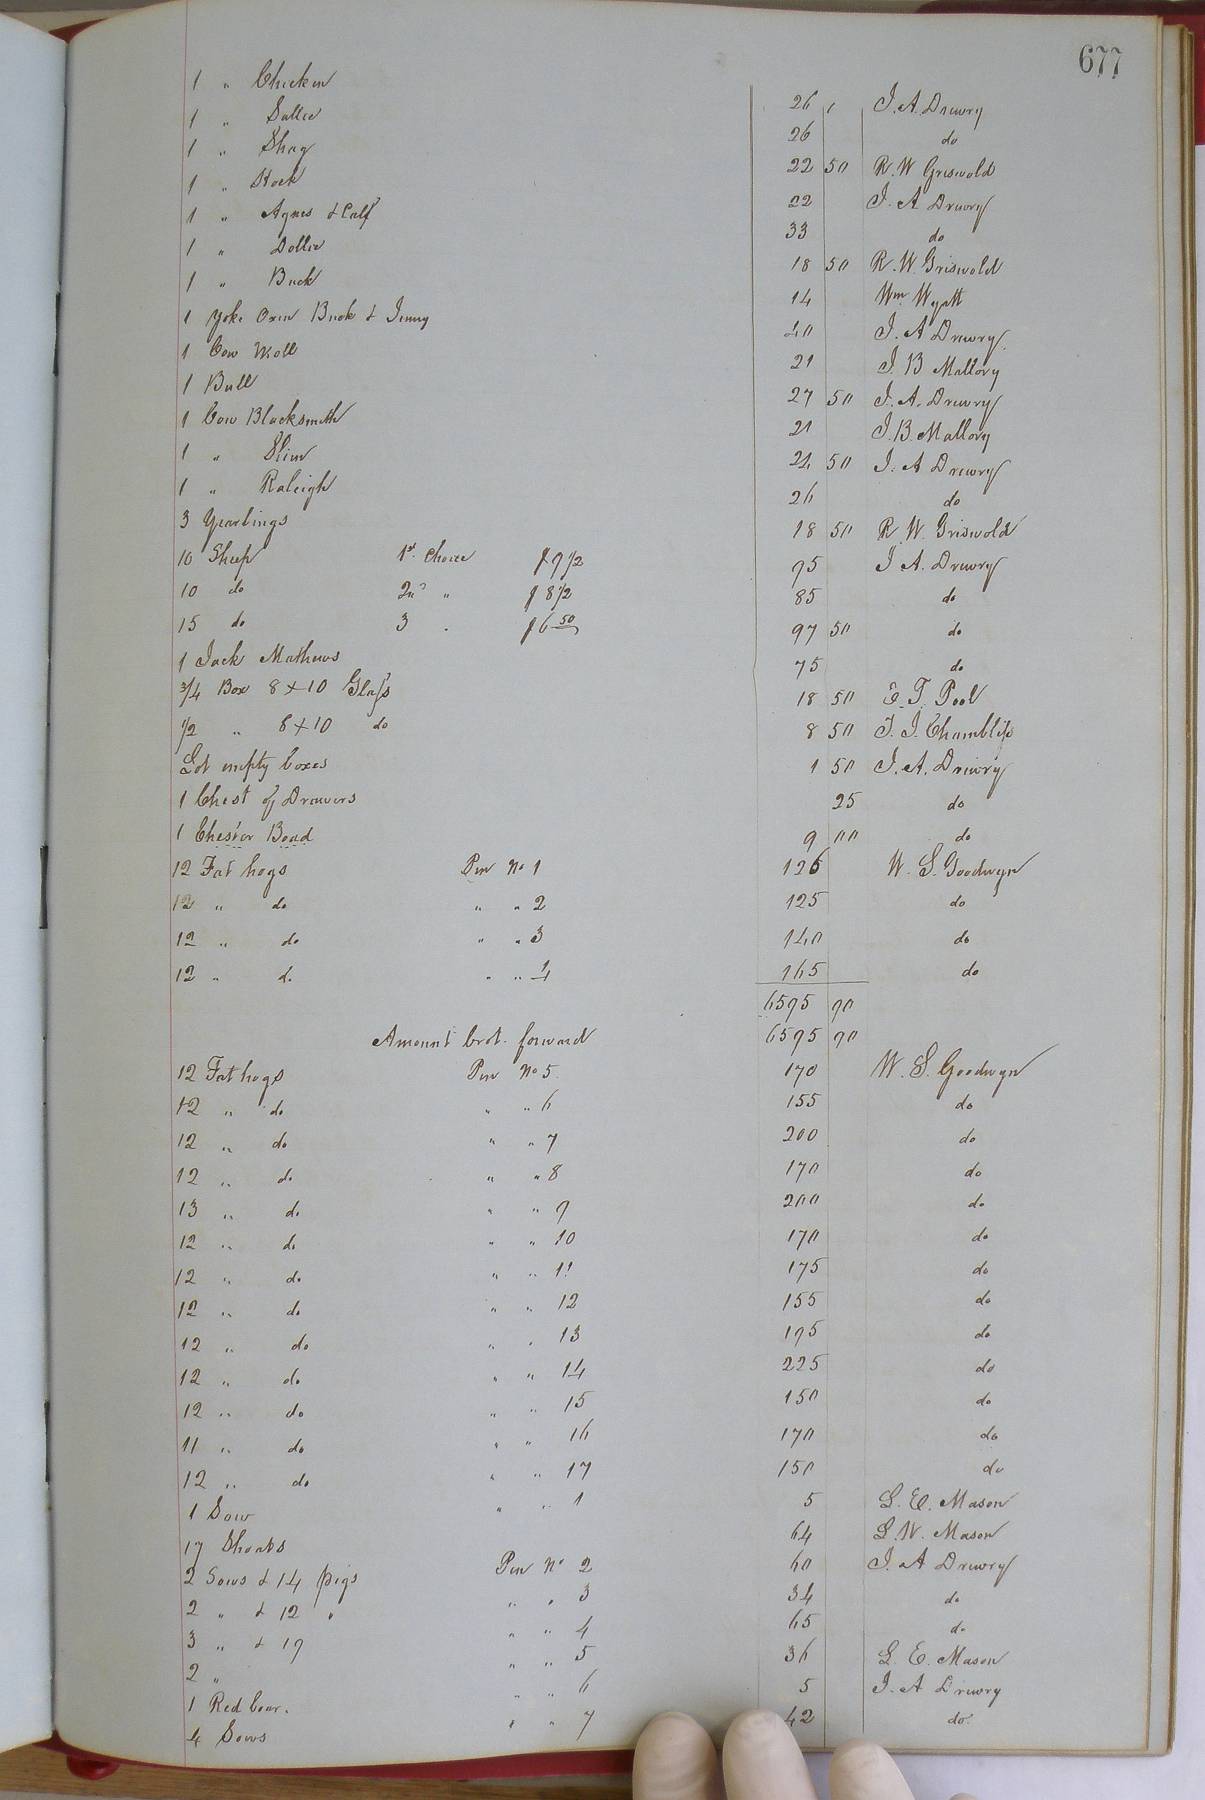 677
1 " Chicken 26 , J. A. Drewry
1 " Sallie 26 do
1 " Shag 22 50 R. W Griswold
1 " Stock 22 J. A Drewry
1 " Agnes & Calf 33 do
1 " Dollie 18 50 R. W. Griswold
1 " Buck 14 Wm Wyatt
1 Yoke Oxen Buck & Jenny 40 J. A Drewry
1 Cow Moll 21 J. B Mallory
1 Bull 27 50 J. A. Drewry
1 Cow Blacksmith 21 J. B. Mallory
1 " Slim 24 50 J. A Drewry
1 " Raleigh 26 do
3 Yearlings 18 50 R. W. Griswold
10 Sheep 1st choice $9 1/2 95 J A. Drewry
10 do 2nd " $8 1/2 85 do
15 do 3 " $6 50 97 50 do
1 Jack Mathews 75 do
3/4 Box 8 x 10 Glass 18 50 E. T. Pool
1/2 " 8 x 10 do 8 50 T. J. Chambliss
Lot empty boxes 1 50 J. A. Drewry
1 Chest of Drawers 25 do
1 Chester Boad 9 00 do
12 Fat hogs Pen No 1 126 W. S. Goodwyn
12 " do " " 2 125 do
12 " do " " 3 140 do
12 " do " " 4 165 do
6595 90
Amount brot. forward 6595 90
12 Fat hogs Pen No 5. 170 W. S. Goodwyn
12 " do " " 6 155 do
12 " do " " 7 200 do
12 " do " " 8 170 do
13 " do " " 9 200 do
12 " do " " 10 170 do
12 " do " " 11 175 do
12 " do " " 12 155 do
12 " do " " 13 195 do
12 " do " " 14 225 do
12 " do " " 15 150 do
11 " do " " 16 170 do
12 " do " " 17 150 do
1 Sow " " 1 5 L. E. Mason
17 Shoats 64 L. W. Mason
2 Sows & 14 pigs Pen No 2 60 J. A Drewry
2 " & 12 " " " 3 34 do
3 " & 19 " " 4 65 do
2 " " " 5 36 L. E. Mason
1 Red boar. " " 6 5 J. A Drewry
4 Sows " " 7 42 do